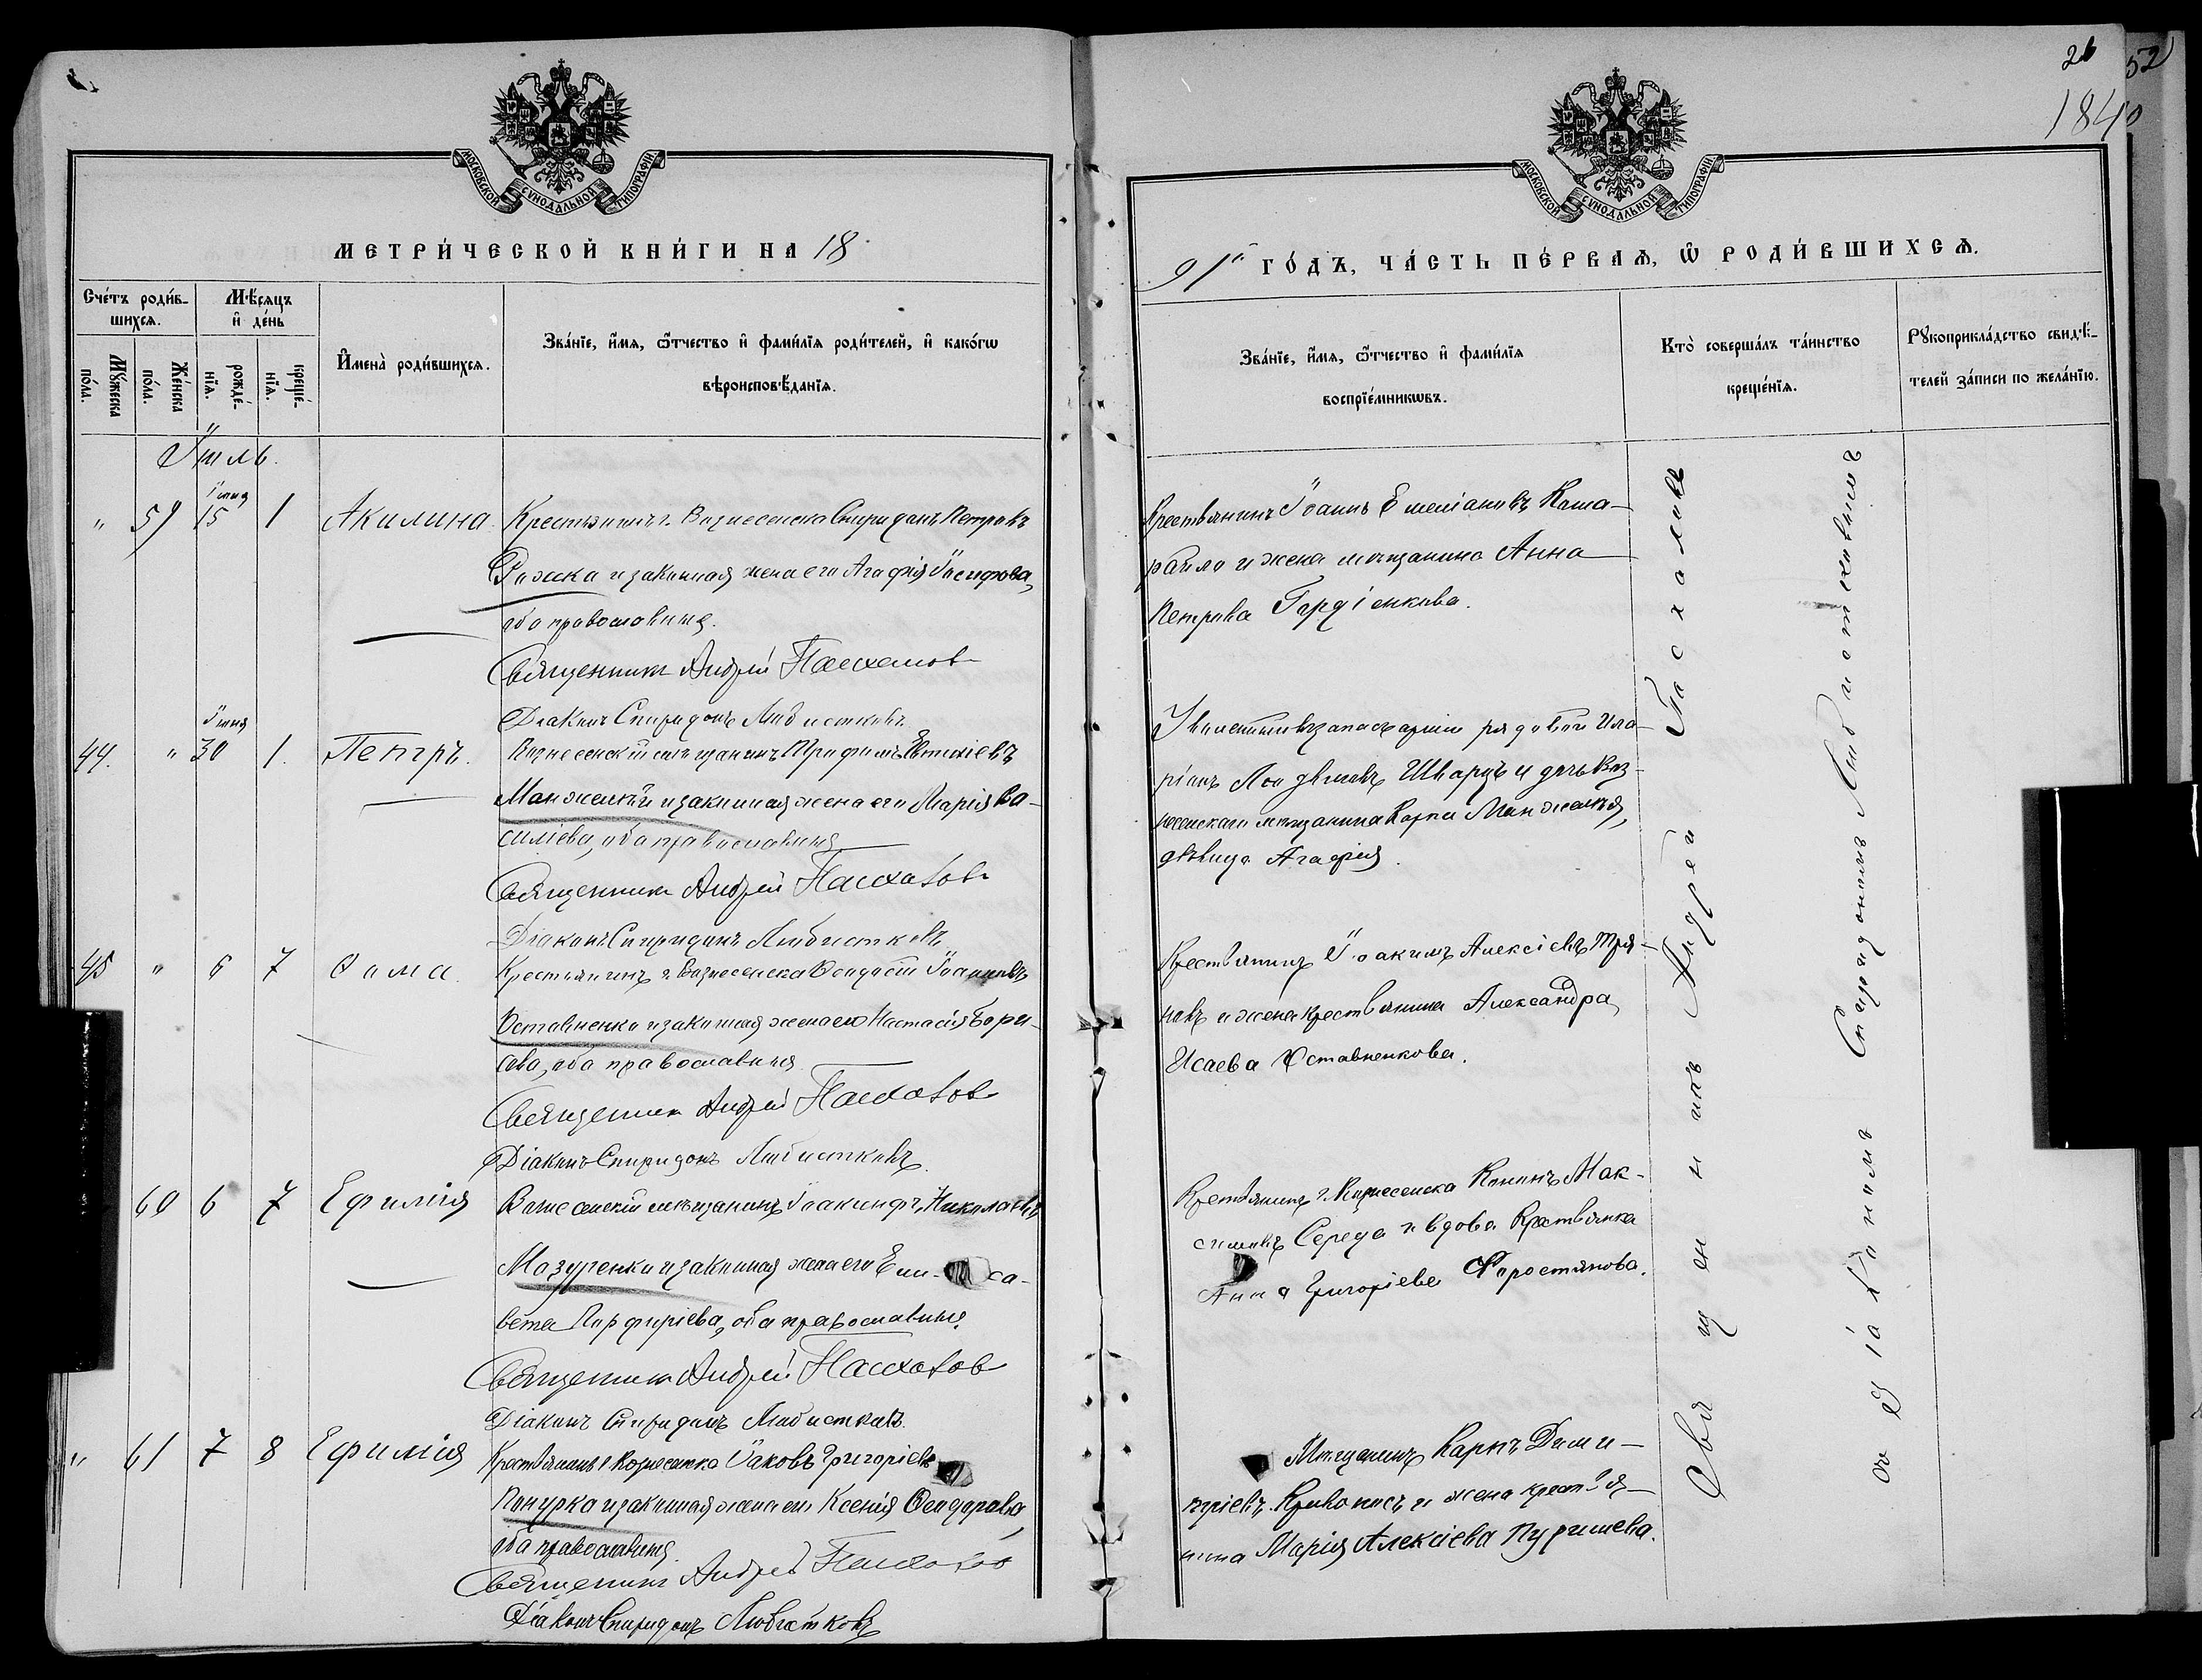 26 52
1840
МОСКОВСКОЙ СѴНОДАЛЬНОЙ ТИПОГРАФІИ
МОСКОВСКОЙ СѴНОДАЛЬНОЙ ТИПОГРАФІИ
МЕТРИ́ЧЕСКОЙ КНИ́ГИ НА 18
91й ГО́ДЪ, ЧА́СТЬ ПЕ́РВАѦ, Ѡ҆ РОДИ́ВШИХСѦ.
Сче́тъ роди́в-
шихсѧ.
Мꙋ́жеска по́ла.
Же́нска по́ла.
Мѣ́сѧцъ
и҆ де́нь
рожде́-
нїѧ.
креще́-
нїѧ.
И҆мена̀ роди́вшихсѧ.
Зва́нїе, и҆́мѧ, ѻ҆́тчество и҆ фами́лїѧ роди́телей, и҆ како́гѡ
вѣроисповѣ́данїѧ.
Зва́нїе, и҆́мѧ, ѻ҆́тчество и҆ фами́лїѧ
воспрїе́мникѡвъ.
Кто̀ соверша́лъ та́инство
креще́нїѧ.
Рꙋкоприкла́дство свидѣ́-
телей за́писи по жела́нїю.
Іюль.
Іюня
" 59 15 1 Акилина. Крестьянинъ г. Вознесенска Спиридонъ Петровъ
Рожка и законная жена его Агафія Іосифова,
оба православные.
Священникъ Андрей Пасхалов
Діаконъ Спиридонъ Любистковъ.
Крестьянинъ Іоаннъ Емеліановъ Каша-
райло и жена мѣщанина Анна
Петрова Гордіенкова.
Іюня
44. " 30 1. Петръ. Вознесенскій мѣщанинъ Трофимъ Евтихіевъ
Манжелѣй и законная жена его Марія Ва-
силіева, оба православные
Священникъ Андрей Пасхалов
Діаконъ Спиридонъ Любистковъ
Уволенный въ запасъ арміи рядовой Ила-
ріонъ Людвиговъ Шварцъ и дочь Воз-
несенскаго мѣщанина Карпа Манжелѣя,
дѣвица Агафія.
45 " 6 7 Ѳома. Крестьянинъ г. Вознесенска Ѳеодосій Іоанновъ
Оставненко и законная жена его Настасія Бори-
сова, оба православные
Священник Андрей Пасхалов
Діаконъ Спиридонъ Любистковъ.
Крестьянинъ Іоакимъ Алексіевъ Тря-
новъ и жена крестьянина Александра
Исаева Оставненкова.
60 6 7 Ефимія Вознесенскій мѣщанинъ Іоакинфъ Николаевъ
Мазуренко и законная жена его Ели-са-
вета Порфиріева, оба православные.
Священник Андрей Пасхалов
Діаконъ Спиридонъ Любистковъ.
Крестьянинъ г. Вознесенска Кононъ Мак-
симовъ Середа и вдова Крестьянка
Анна Григоріева Форостянова.
" 61 7 8 Ефимія Крестьянинъ г. Вознесенска Іаковъ Григоріевъ
Кочурка и законная жена его Ксенія Ѳеодорова,
оба православные.
Священник Андрей Пасхалов
Діаконъ Спиридонъ Любистковъ
Мѣщанинъ Карпъ Дими-
тріевъ Кривоносъ и жена крестья-
нина Марія Алексіева Пуришева.
Священникъ Андрей Пасхаловъ
съ Діакономъ Спиридономъ Любистковымъ